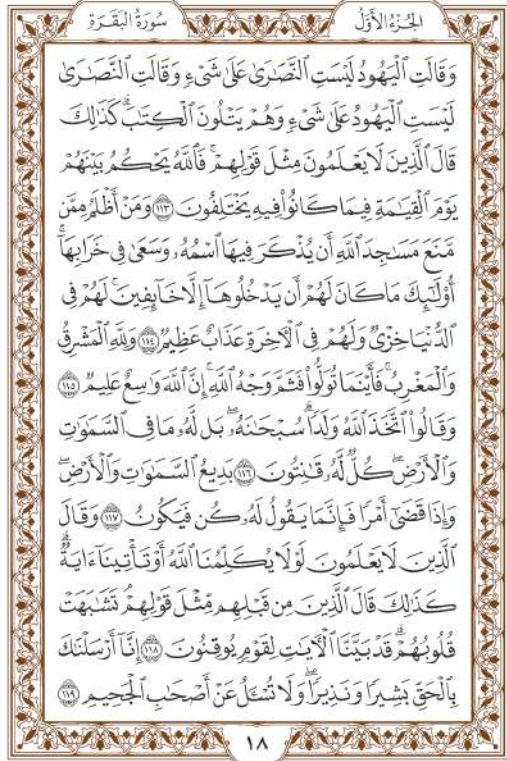 الجُزْءُ الأَوَّلُ سُورَةُ البَقَرَةِ
وَقَالَتِ ٱلۡيَهُودُ لَيۡسَتِ ٱلنَّصَٰرَىٰ عَلَىٰ شَيۡءٖ وَقَالَتِ ٱلنَّصَٰرَىٰ
لَيۡسَتِ ٱلۡيَهُودُ عَلَىٰ شَيۡءٖ وَهُمۡ يَتۡلُونَ ٱلۡكِتَٰبَۗ كَذَٰلِكَ
قَالَ ٱلَّذِينَ لَا يَعۡلَمُونَ مِثۡلَ قَوۡلِهِمۡۚ فَٱللَّهُ يَحۡكُمُ بَيۡنَهُمۡ
يَوۡمَ ٱلۡقِيَٰمَةِ فِيمَا كَانُواْ فِيهِ يَخۡتَلِفُونَ ١١٣ وَمَنۡ أَظۡلَمُ مِمَّن
مَّنَعَ مَسَٰجِدَ ٱللَّهِ أَن يُذۡكَرَ فِيهَا ٱسۡمُهُۥ وَسَعَىٰ فِي خَرَابِهَآۚ
أُوْلَٰٓئِكَ مَا كَانَ لَهُمۡ أَن يَدۡخُلُوهَآ إِلَّا خَآئِفِينَۚ لَهُمۡ فِي
ٱلدُّنۡيَا خِزۡيٞ وَلَهُمۡ فِي ٱلۡأٓخِرَةِ عَذَابٌ عَظِيمٞ ١١٤ وَلِلَّهِ ٱلۡمَشۡرِقُ
وَٱلۡمَغۡرِبُۚ فَأَيۡنَمَا تُوَلُّواْ فَثَمَّ وَجۡهُ ٱللَّهِۚ إِنَّ ٱللَّهَ وَٰسِعٌ عَلِيمٞ ١١٥
وَقَالُواْ ٱتَّخَذَ ٱللَّهُ وَلَدٗاۗ سُبۡحَٰنَهُۥۖ بَل لَّهُۥ مَا فِي ٱلسَّمَٰوَٰتِ
وَٱلۡأَرۡضِۖ كُلّٞ لَّهُۥ قَٰنِتُونَ ١١٦ بَدِيعُ ٱلسَّمَٰوَٰتِ وَٱلۡأَرۡضِۖ
وَإِذَا قَضَىٰٓ أَمۡرٗا فَإِنَّمَا يَقُولُ لَهُۥ كُن فَيَكُونُ ١١٧ وَقَالَ
ٱلَّذِينَ لَا يَعۡلَمُونَ لَوۡلَا يُكَلِّمُنَا ٱللَّهُ أَوۡ تَأۡتِينَآ ءَايَةٞۗ
كَذَٰلِكَ قَالَ ٱلَّذِينَ مِن قَبۡلِهِم مِّثۡلَ قَوۡلِهِمۡۘ تَشَٰبَهَتۡ
قُلُوبُهُمۡۗ قَدۡ بَيَّنَّا ٱلۡأٓيَٰتِ لِقَوۡمٖ يُوقِنُونَ ١١٨ إِنَّآ أَرۡسَلۡنَٰكَ
بِٱلۡحَقِّ بَشِيرٗا وَنَذِيرٗاۖ وَلَا تُسۡـَٔلُ عَنۡ أَصۡحَٰبِ ٱلۡجَحِيمِ ١١٩
١٨